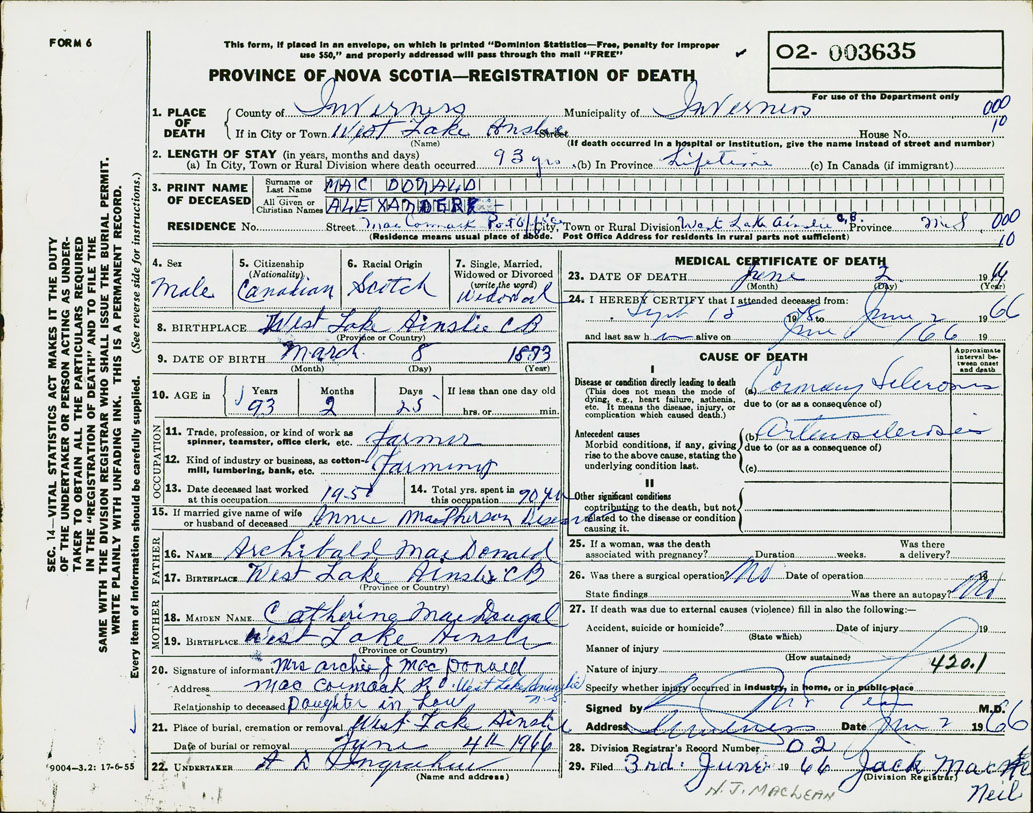 FORM 6
This form, if placed in an envelope, on which is printed "Dominion Statistics—Free, penalty for improper
use $50," and properly addressed will pass through the mail "FREE"
02- 003635
For use of the Department only
PROVINCE OF NOVA SCOTIA—REGISTRATION OF DEATH
1. PLACE OF DEATH
County of Inverness Municipality of Inverness 000 10
If in City or Town West Lake Ainslie Street House No.
(Name) (If death occurred in a hospital or institution, give the name instead of street and number)
2. LENGTH OF STAY (in years, months and days)
(a) In City, Town or Rural Division where death occurred 93 yrs (b) In Province Lifetime (c) In Canada (if immigrant)
3. PRINT NAME OF DECEASED
Surname or Last Name MAC DONALD
All Given or Christian Names ALEXANDER
RESIDENCE No. Street MacCormack Post Office City, Town or Rural Division West Lake Ainslie C.B. Province N.S 000 10
(Residence means usual place of abode. Post Office Address for residents in rural parts not sufficient)
4. Sex Male
5. Citizenship (Nationality) Canadian
6. Racial Origin Scotch
7. Single, Married, Widowed or Divorced (write the word) Widowed
8. BIRTHPLACE West Lake Ainslie CB
(Province or Country)
9. DATE OF BIRTH March 8 1873
(Month) (Day) (Year)
10. AGE in Years 93 Months 2 Days 25 If less than one day old hrs. or min.
OCCUPATION
11. Trade, profession, or kind of work as spinner, teamster, office clerk, etc. Farmer
12. Kind of industry or business, as cotton-mill, lumbering, bank, etc. Farming
13. Date deceased last worked at this occupation 195
14. Total yrs. spent in this occupation 70 yrs
15. If married give name of wife or husband of deceased Annie MacPherson
FATHER
16. NAME Archibald MacDonald
17. BIRTHPLACE West Lake Ainslie CB
(Province or Country)
MOTHER
18. MAIDEN NAME Catherine MacDougal
19. BIRTHPLACE West Lake Ainslie
(Province or Country)
20. Signature of informant Mrs Archie J MacDonald
Address MacCormack R West Lake Ainslie N.S
Relationship to deceased Daughter in Law
21. Place of burial, cremation or removal West Lake Ainslie
Date of burial or removal June 4th 1966
22. UNDERTAKER A D Ingraham
(Name and address)
MEDICAL CERTIFICATE OF DEATH
23. DATE OF DEATH June 2 1966
(Month) (Day) (Year)
24. I HEREBY CERTIFY that I attended deceased from:
Sept 15 19 to June 2 1966
and last saw h alive on June 1 /66 19
CAUSE OF DEATH
Approximate interval between onset and death
I
Disease or condition directly leading to death
(This does not mean the mode of dying, e.g., heart failure, asthenia, etc. It means the disease, injury, or complication which caused death.)
(a) Coronary Sclerosis
due to (or as a consequence of)
Antecedent causes
Morbid conditions, if any, giving rise to the above cause, stating the underlying condition last.
(b) Arteriosclerosis
due to (or as a consequence of)
(c)
II
Other significant conditions
contributing to the death, but not related to the disease or condition causing it.
25. If a woman, was the death associated with pregnancy? Duration weeks. Was there a delivery?
26. Was there a surgical operation? No Date of operation 19
State findings Was there an autopsy? No
27. If death was due to external causes (violence) fill in also the following:—
Accident, suicide or homicide? Date of injury 19
(State which)
Manner of injury
(How sustained)
Nature of injury 420.1
Specify whether injury occurred in industry, in home, or in public place
Signed by M.D.
Address Inverness Date June 2 1966
28. Division Registrar's Record Number 02
29. Filed 3rd June 1966 Jack MacNeil
(Division Registrar)
N.J. MACLEAN
SEC. 14—VITAL STATISTICS ACT MAKES IT THE DUTY
OF THE UNDERTAKER OR PERSON ACTING AS UNDER-
TAKER TO OBTAIN ALL THE PARTICULARS REQUIRED
IN THE "REGISTRATION OF DEATH" AND TO FILE THE
SAME WITH THE DIVISION REGISTRAR WHO SHALL ISSUE THE BURIAL PERMIT.
WRITE PLAINLY WITH UNFADING INK. THIS IS A PERMANENT RECORD.
Every item of information should be carefully supplied. (See reverse side for instructions.)
9004—3.2: 17-6-55